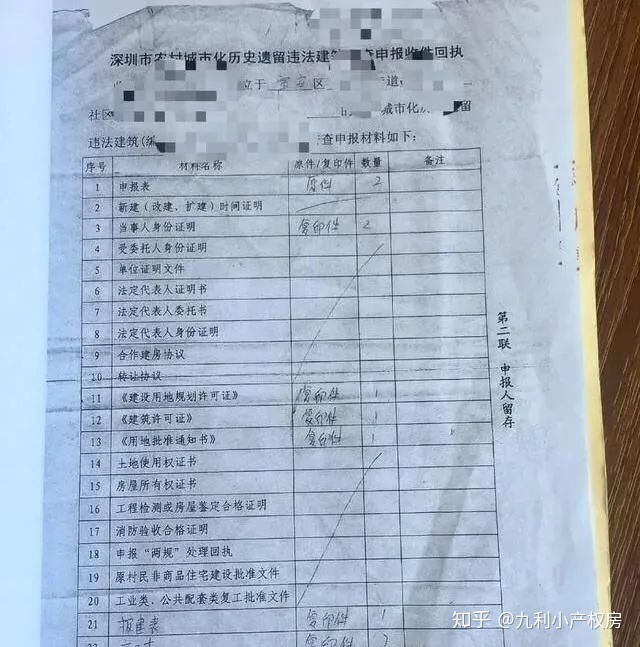 深圳市农村城市化历史遗留违法建筑 查申报收件回执
位于 宝安 区 街道
社区 城市化 留
违法建筑(编 查申报材料如下:
序号 材料名称 原件/复印件 数量 备注
1 申报表 原件 2
2 新建(改建、扩建)时间证明
3 当事人身份证明 复印件 2
4 受委托人身份证明
5 单位证明文件
6 法定代表人证明书
7 法定代表人委托书
8 法定代表人身份证明
9 合作建房协议
10 转让协议
11 《建设用地规划许可证》 复印件 1
12 《建筑许可证》 复印件 1
13 《用地批准通知书》 复印件 1
14 土地使用权证书
15 房屋所有权证书
16 工程检测或房屋鉴定合格证明
17 消防验收合格证明
18 申报“两规”处理回执
19 原村民非商品住宅建设批准文件
20 工业类、公共配套类复工批准文件
21 报建表 复印件 1
22 复印件
第二联 申报人留存
知乎 @九利小产权房